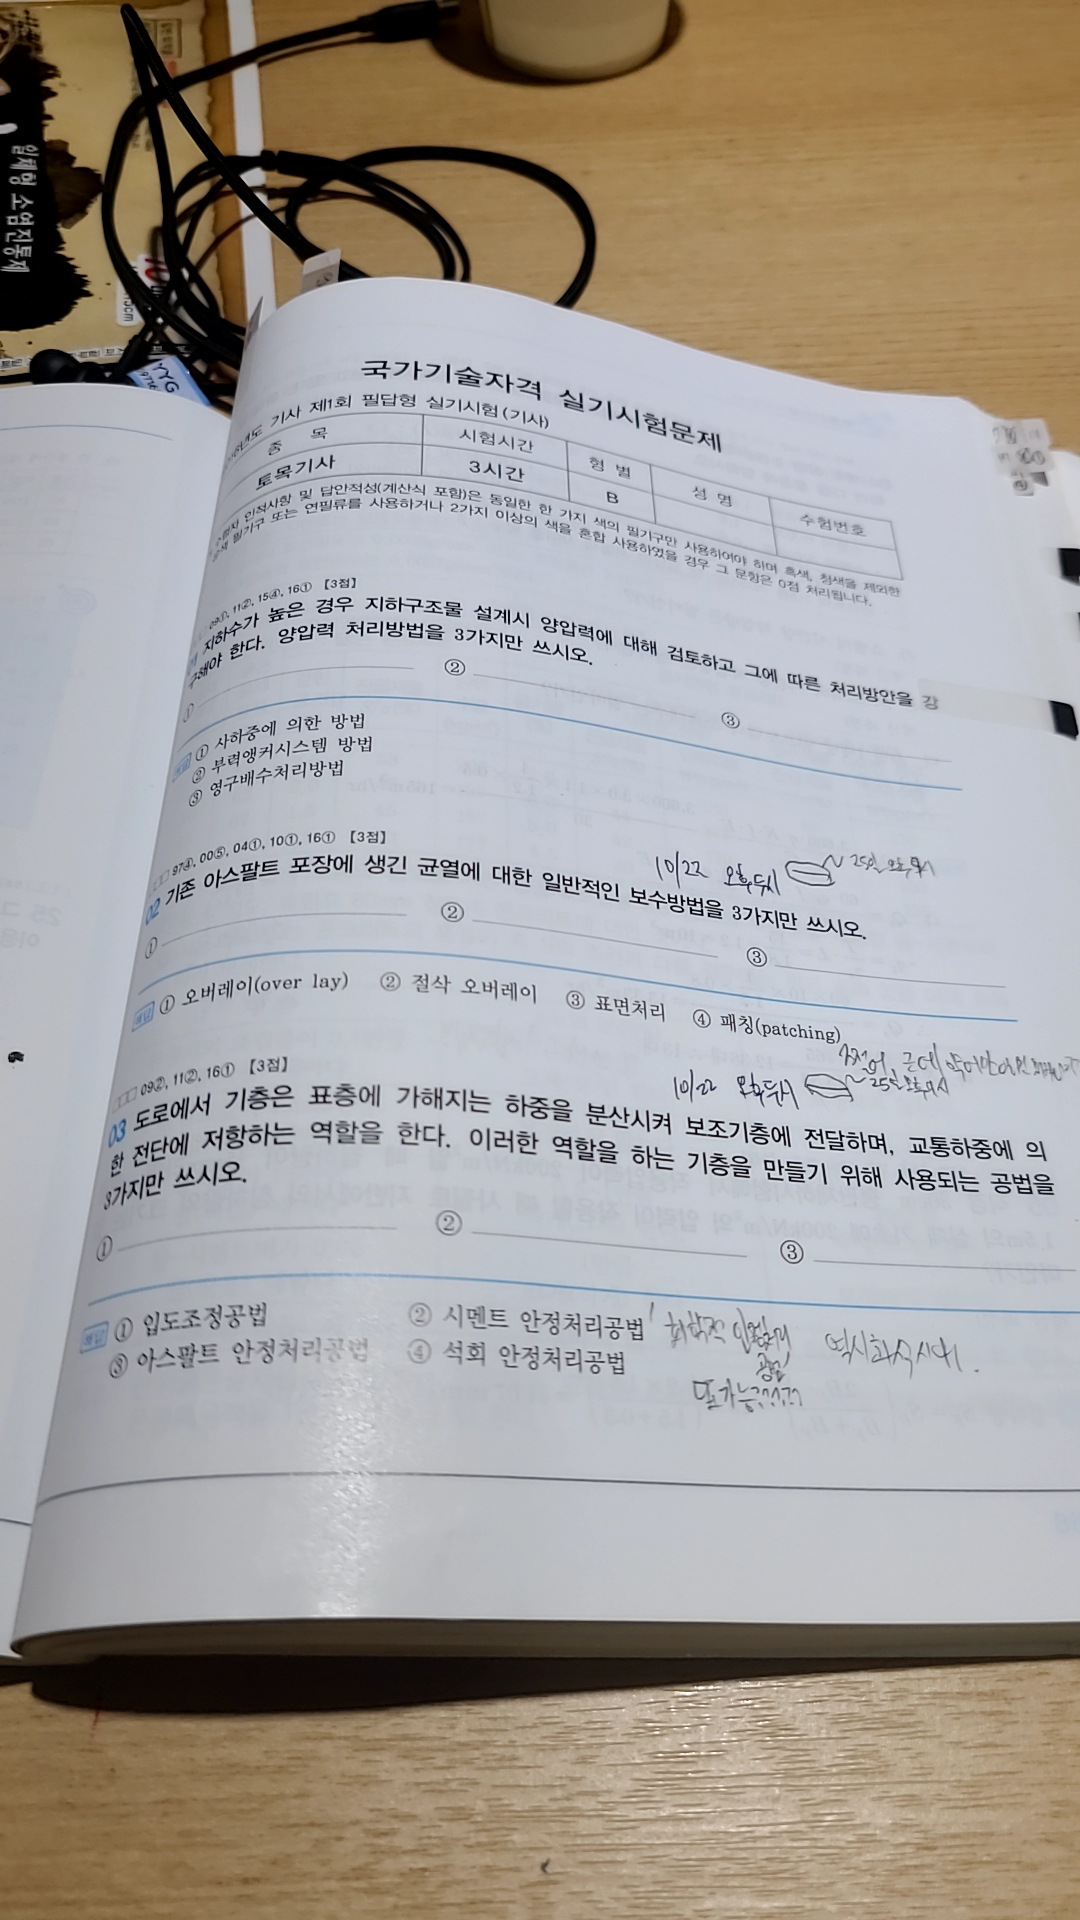 일체형 소염진통제
YYG
국가기술자격 실기시험문제
기사 제1회 필답형 실기시험(기사)
종 목
시험시간
형 별
성 명
수험번호
토목기사
3시간
B
인적사항 및 답안작성(계산식 포함)은 동일한 한 가지 색의 필기구만 사용하여야 하며 흑색, 청색을 제외한
필기구 또는 연필류를 사용하거나 2가지 이상의 색을 혼합 사용하였을 경우 그 문항은 0점 처리됩니다.
09①, 11②, 15④, 16① 【3점】
지하수가 높은 경우 지하구조물 설계시 양압력에 대해 검토하고 그에 따른 처리방안을 강
구해야 한다. 양압력 처리방법을 3가지만 쓰시오.
① ② ③
해답 ① 사하중에 의한 방법
② 부력앵커시스템 방법
③ 영구배수처리방법
□□□ 97④, 00⑤, 04①, 10①, 16① 【3점】
10/22 오후두시
02 기존 아스팔트 포장에 생긴 균열에 대한 일반적인 보수방법을 3가지만 쓰시오.
① ② ③
해답 ① 오버레이(over lay) ② 절삭 오버레이 ③ 표면처리 ④ 패칭(patching)
□□□ 09②, 11②, 16① 【3점】
10/22 오후두시
03 도로에서 기층은 표층에 가해지는 하중을 분산시켜 보조기층에 전달하며, 교통하중에 의
한 전단에 저항하는 역할을 한다. 이러한 역할을 하는 기층을 만들기 위해 사용되는 공법을
3가지만 쓰시오.
① ② ③
해답 ① 입도조정공법 ② 시멘트 안정처리공법
③ 아스팔트 안정처리공법 ④ 석회 안정처리공법